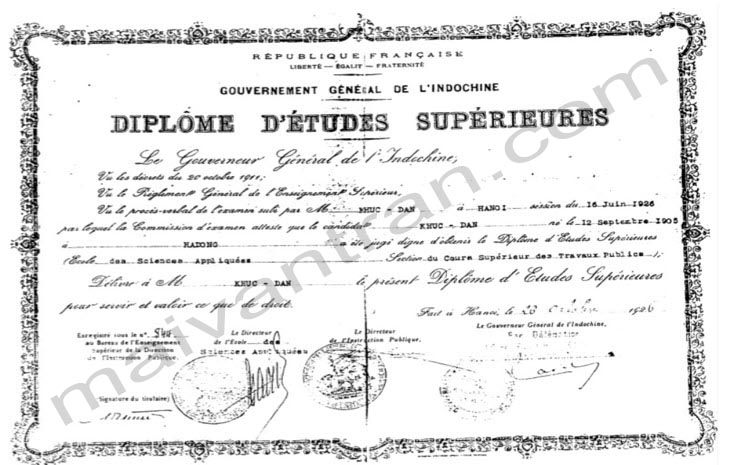 RÉPUBLIQUE FRANÇAISE
LIBERTÉ — ÉGALIT — FRATERNITÉ
GOUVERNEMENT GÉNÉRAL DE L'INDOCHINE
DIPLÔME D'ÉTUDES SUPÉRIEURES
Le Gouverneur Général de l'Indochine,
Vu les décrets du 20 octobre 1911;
Vu le Règlement Général de l'Enseignement Supérieur,
Vu le procès-verbal de l'examen subi par M. KHUC - DAN à HANOI session du 16 Juin 1926
par lequel la Commission d'examen atteste que le candidat KHUC - DAN né le 12 Septembre 1905
à HADONG a été jugé digne d'obtenir le Diplôme d'Etudes Supérieures
(Ecole des Sciences Appliquées Section du Cours Supérieur des Travaux Publics);
Délivre à M. KHUC - DAN le présent Diplôme d'Etudes Supérieures
pour servir et valoir ce que de droit.
Fait à Hanoi, le 23 octobre 1926
Enregistré sous le n°
au Bureau de l'Enseignement
Supérieur de la Direction
de l'Instruction Publique.
Le Directeur
de l'École des
Sciences Appliquées
Le Directeur
de l'Instruction Publique.
Le Gouverneur Général de l'Indochine,
Par Délégation
Signature du titulaire)
maivantran.com